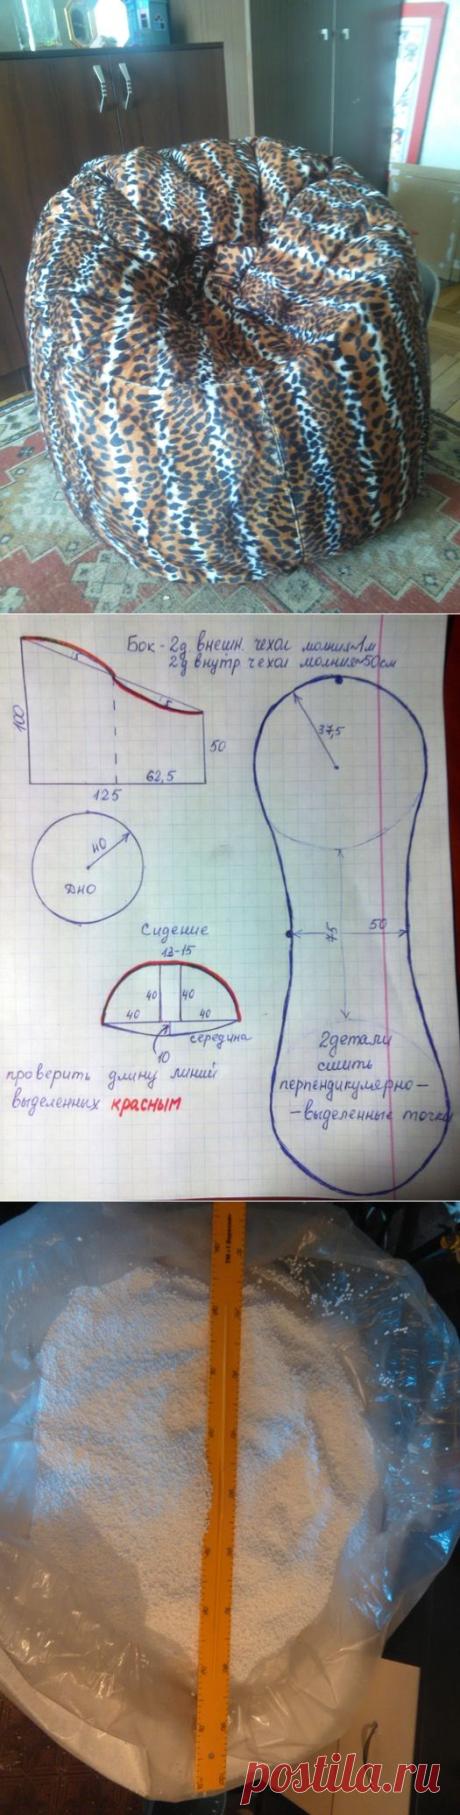 Бок - 2д внешн. чехол молния ~1м
2д внутр чехол молния ~50см
5
5
100
50
62,5
125
37,5
40
Дно
Сидение
13-15
40
40
40
40
середина
10
75
50
проверить длину линий
выделенных красным
2детали
сшить
перпендикулярно -
- выделенные точки
postila.ru